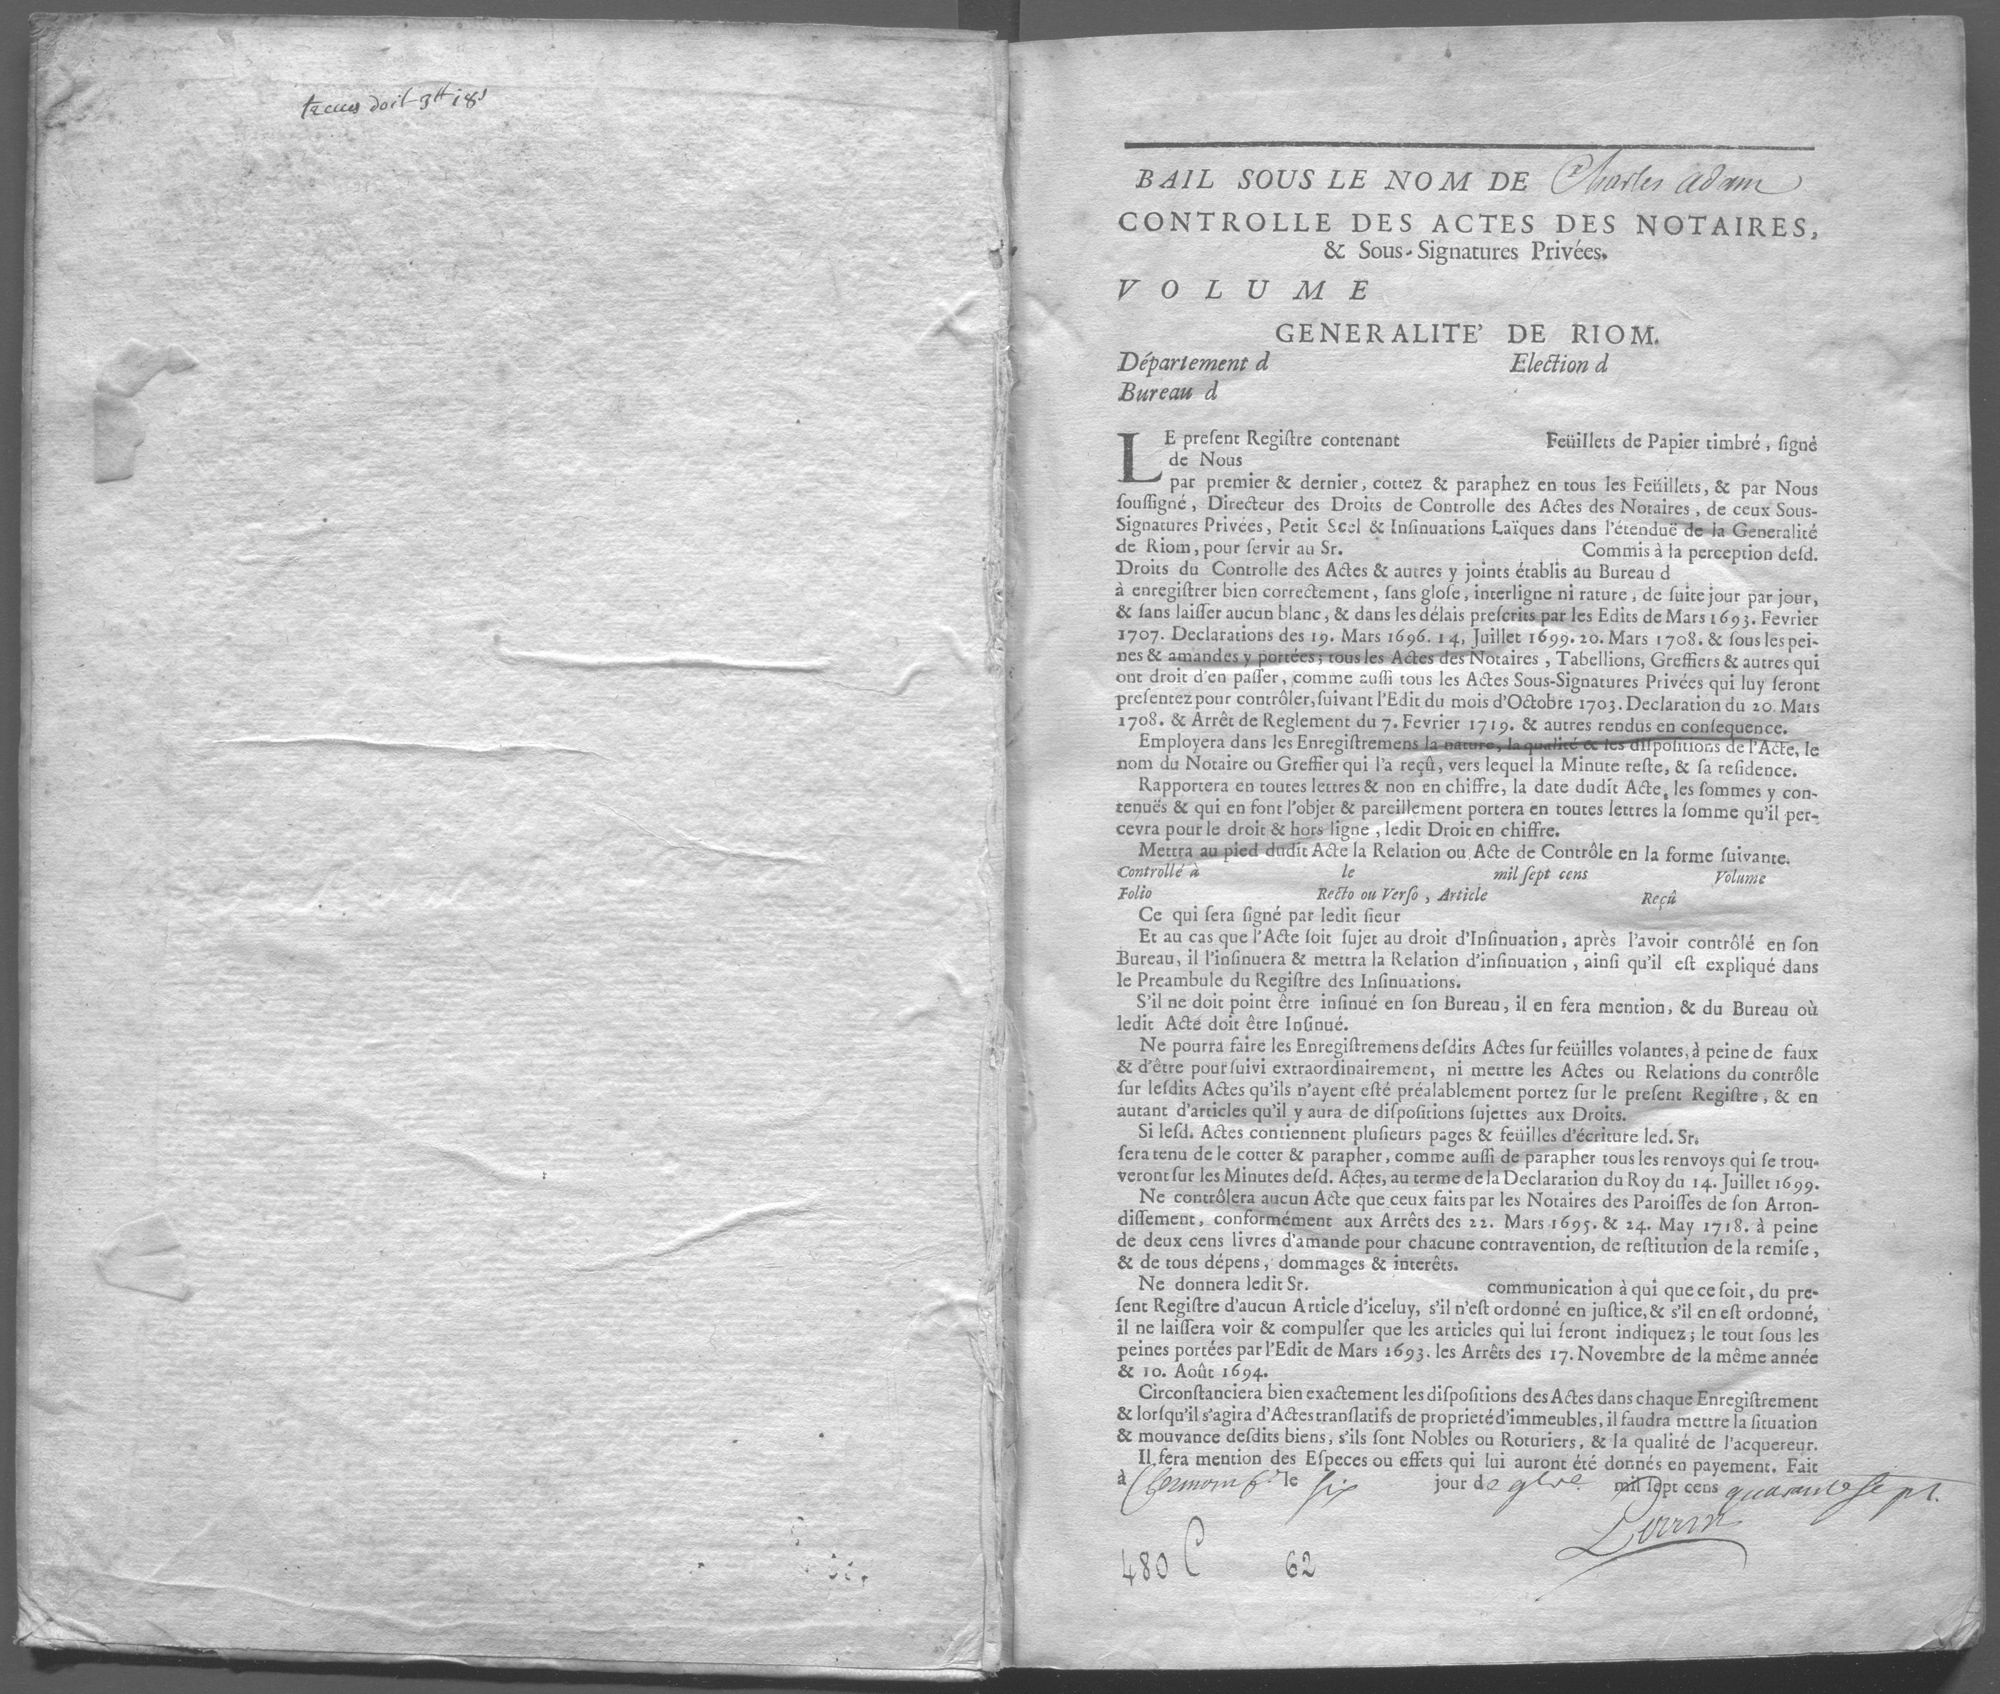 doit 3tt i8s
BAIL SOUS LE NOM DE Charles adam
CONTROLLE DES ACTES DES NOTAIRES,
& Sous-Signatures Privées.
VOLUME
GENERALITE' DE RIOM.
Département d Election d
Bureau d
LE preſent Regiſtre contenant Feüillets de Papier timbré, ſigné
de Nous
par premier & dernier, cottez & paraphez en tous les Feüillets, & par Nous
ſouſſigné, Directeur des Droits de Controlle des Actes des Notaires, de ceux Sous-
Signatures Privées, Petit Scel & Inſinuations Laïques dans l'étenduë de la Generalité
de Riom, pour ſervir au Sr. Commis à la perception deſd.
Droits du Controlle des Actes & autres y joints établis au Bureau d
à enregiſtrer bien correctement, ſans gloſe, interligne ni rature, de ſuite jour par jour,
& ſans laiſſer aucun blanc, & dans les délais preſcrits par les Edits de Mars 1693. Fevrier
1707. Declarations des 19. Mars 1696. 14. Juillet 1699. 20. Mars 1708. & ſous les pei-
nes & amandes y portées; tous les Actes des Notaires, Tabellions, Greffiers & autres qui
ont droit d'en paſſer, comme auſſi tous les Actes Sous-Signatures Privées qui luy ſeront
preſentez pour contrôler, ſuivant l'Edit du mois d'Octobre 1703. Declaration du 20. Mars
1708. & Arrêt de Reglement du 7. Fevrier 1719. & autres rendus en conſequence.
Employera dans les Enregiſtremens la nature, la qualité & les diſpoſitions de l'Acte, le
nom du Notaire ou Greffier qui l'a reçû, vers lequel la Minute reſte, & ſa reſidence.
Rapportera en toutes lettres & non en chiffre, la date dudit Acte, les ſommes y con-
tenuës & qui en font l'objet & pareillement portera en toutes lettres la ſomme qu'il per-
cevra pour le droit & hors ligne, ledit Droit en chiffre.
Mettra au pied dudit Acte la Relation ou Acte de Contrôle en la forme ſuivante.
Controllé à le mil ſept cens Volume
Folio Recto ou Verſo, Article Reçû
Ce qui ſera ſigné par ledit ſieur
Et au cas que l'Acte ſoit ſujet au droit d'Inſinuation, après l'avoir contrôlé en ſon
Bureau, il l'inſinuera & mettra la Relation d'inſinuation, ainſi qu'il eſt expliqué dans
le Preambule du Regiſtre des Inſinuations.
S'il ne doit point être inſinué en ſon Bureau, il en fera mention, & du Bureau où
ledit Acte doit être Inſinué.
Ne pourra faire les Enregiſtremens deſdits Actes ſur feüilles volantes, à peine de faux
& d'être pourſuivi extraordinairement, ni mettre les Actes ou Relations du contrôle
ſur leſdits Actes qu'ils n'ayent eſté préalablement portez ſur le preſent Regiſtre, & en
autant d'articles qu'il y aura de diſpoſitions ſujettes aux Droits.
Si leſd. Actes contiennent pluſieurs pages & feüilles d'écriture led. Sr.
ſera tenu de le cotter & parapher, comme auſſi de parapher tous les renvoys qui ſe trou-
veront ſur les Minutes deſd. Actes, au terme de la Declaration du Roy du 14. Juillet 1699.
Ne contrôlera aucun Acte que ceux faits par les Notaires des Paroiſſes de ſon Arron-
diſſement, conformément aux Arrêts des 22. Mars 1695. & 24. May 1718. à peine
de deux cens livres d'amande pour chacune contravention, de reſtitution de la remiſe,
& de tous dépens, dommages & interêts.
Ne donnera ledit Sr. communication à qui que ce ſoit, du pre-
ſent Regiſtre d'aucun Article d'iceluy, s'il n'eſt ordonné en juſtice, & s'il en eſt ordonné,
il ne laiſſera voir & compulſer que les articles qui lui ſeront indiquez; le tout ſous les
peines portées par l'Edit de Mars 1693. les Arrêts des 17. Novembre de la même année
& 10. Août 1694.
Circonſtanciera bien exactement les diſpoſitions des Actes dans chaque Enregiſtrement
& lorſqu'il s'agira d'Actes tranſlatifs de proprieté d'immeubles, il faudra mettre la ſituation
& mouvance deſdits biens, s'ils ſont Nobles ou Roturiers, & la qualité de l'acquereur.
Il fera mention des Eſpeces ou effets qui lui auront été donnés en payement. Fait
à Clermont fd le six jour de 9bre. mil ſept cens quarante sept.
Perrin
480 C 62